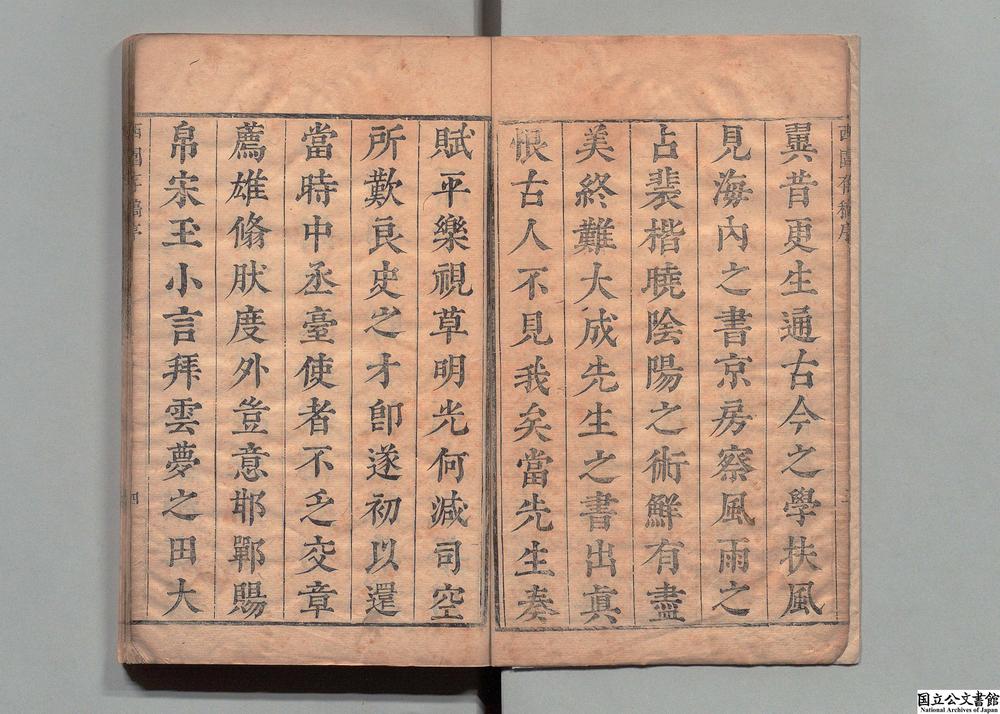 翼昔更生通古今之學扶風
見海內之書京房察風雨之
占裴楷曉陰陽之術鮮有盡
美終難大成先生之書出真
恨古人不見我矣當先生奏
賦平樂視草明光何減司空
所歎良史之才卽遂初以還
當時中丞臺使者不乏交章
薦雄脩肰度外豈意邯鄲賜
帛宋玉小言拜雲夢之田大
四
国立公文書館
National Archives of Japan